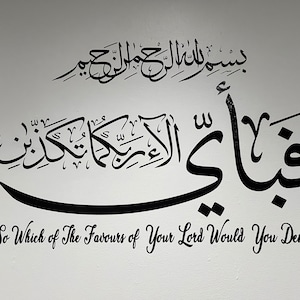 بسم الله الرحمن الرحيم
فبأي آلاء ربكما تكذبن
So Which of The Favours of Your Lord Would You De